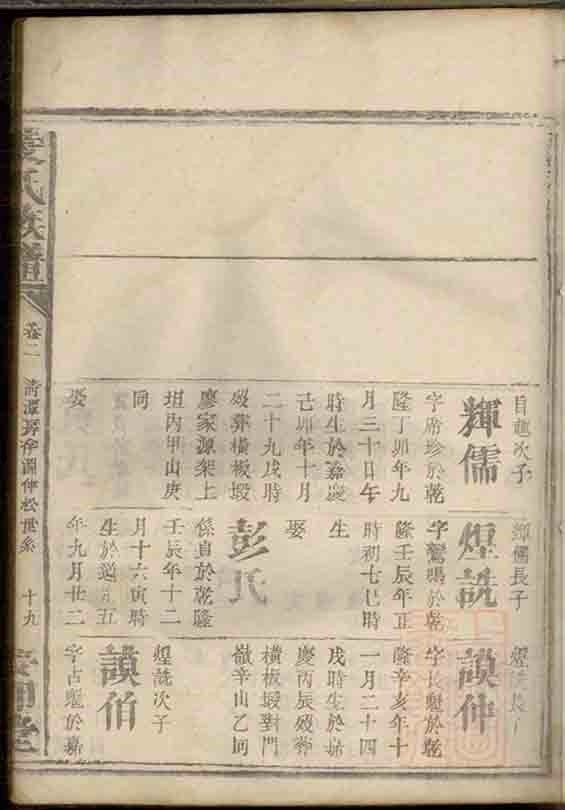 自趣次子
輝儒
字席珍於乾
隆丁卯年九
月三十日午
時生於嘉慶
己卯年十月
二十九戌時
歿葬橫板塅
廖家源架上
坦丙甲山庚
同
娶
輝儒長子
煌詵
字鸞鳴於乾
隆壬辰年正
時初七巳時
生
娶
彭氏
係自於乾隆
壬辰年十二
月十六寅時
生於道光五
年九月廿二
煌詵長子
謨仲
字長魁於乾
隆辛亥年十
一月二十四
戌時生於嘉
慶丙辰歿葬
橫板塅對門
嶺辛山乙向
煌詵次子
謨伯
字占魁於嘉
氏族譜
卷二
清潭房存澗仲松世系
十九